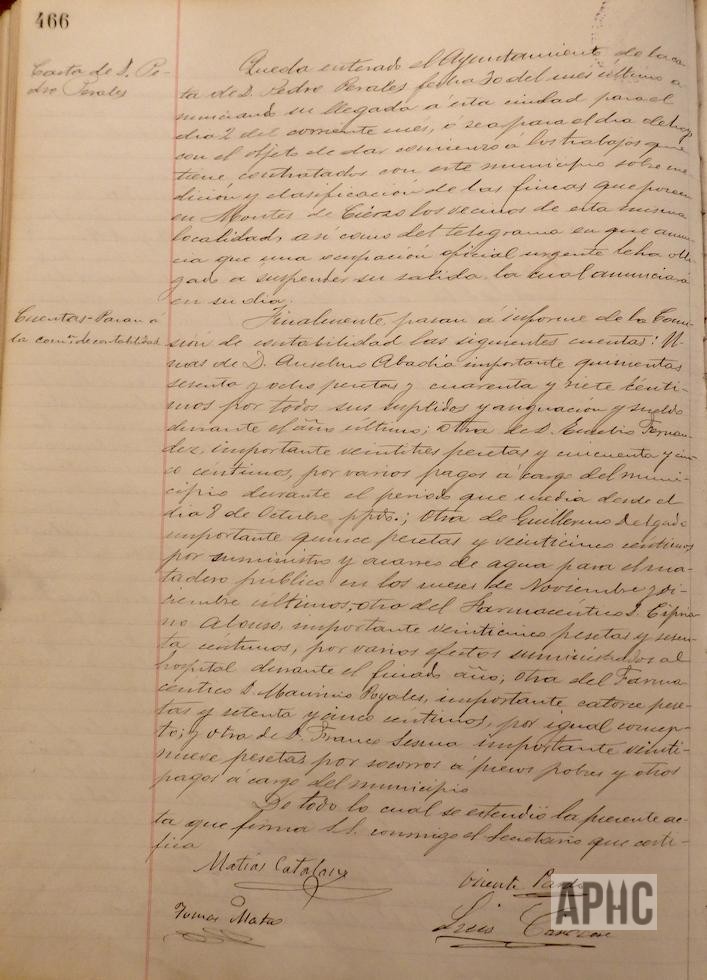 466
Carta de D. Pe-
dro Perales
Queda enterado el Ayuntamiento de la ca
ta de D. Pedro Perales fecha 30 del mes último a
nunciando su llegada a esta ciudad para el
dia 2 del corriente mes, ó sea para el dia de hoy
con el objeto de dar comienzo á los trabajos que
tiene contratados con este municipio sobre me
dición y clasificación de las fincas que poseen
en Montes de Cierzo los vecinos de esta misma
localidad, así como del telegrama en que anun
cia que una ocupación oficial urgente le ha obli
gado a suspender su salida la cual anunciará
en su dia.
Cuentas-Pasan á
la comón. de contabilidad
Finalmente, pasan á informe de la Comi
sión de contabilidad las siguientes cuentas: U
nas de D. Anselmo Abadia importante quinientas
sesenta y ocho pesetas y cuarenta y siete cénti-
mos por todos sus suplidos y asignación y sueldo
durante el año último; otra de D. Eusebio Fernan-
dez, importante veintitres pesetas y cincuenta y cin
co centimos, por varios pagos á cargo del muni-
cipio durante el periodo que media desde el
dia 8 de Octubre ppdo.; Otra de Guillermo Delgado
importante quince pesetas y veinticinco céntimos
por suministro y acarreo de agua para el ma-
tadero público en los meses de Noviembre y Di-
ciembre últimos; otra del Farmacéutico D. Cipria
no Alonso, importante veinticinco pesetas y sesen-
ta céntimos, por varios efectos suministrados al
hospital durante el finado año; Otra del Farma
céutico D. Mauricio Royales, importante catorce pese-
tas y setenta y cinco centimos, por igual concep-
to; y otra de D. Franco Sesma importante veinti-
nueve pesetas por socorros á presos pobres y otros
pagos á cargo del municipio
De todo lo cual se extendió la presente ac-
ta que firma S.S. conmigo el Secretario que certi-
fica
Matias Catalan
Vicente
Tomas Mateo
Luis
APHC